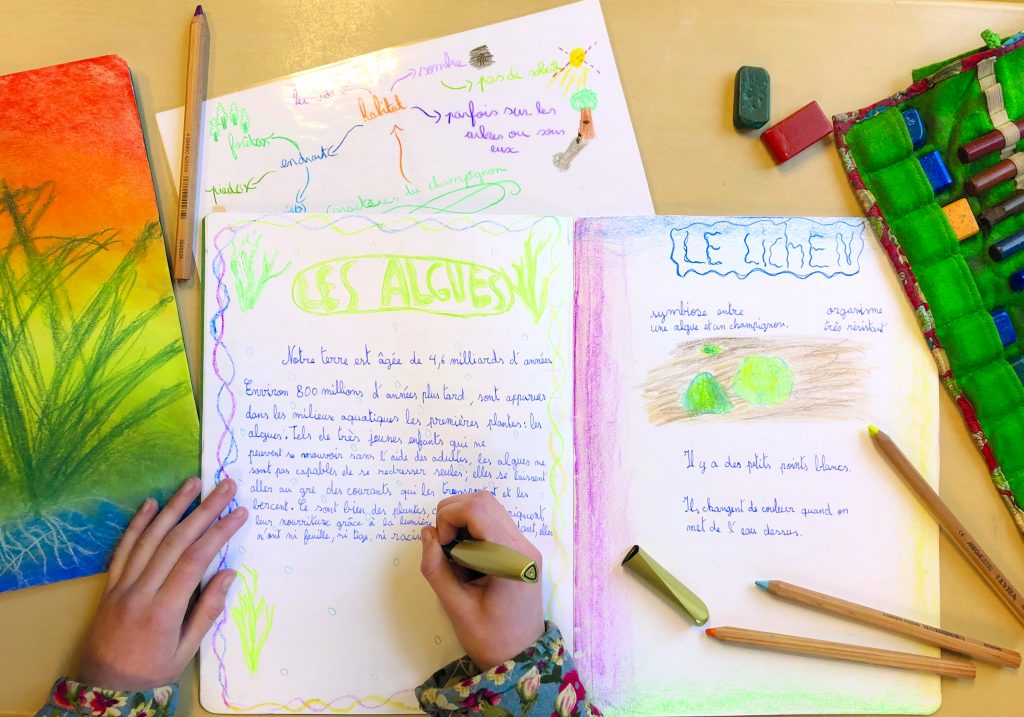 sombre
pas de soleil
habitat
parfois sur les
arbres ou sous
eux
forêt
endroit
caractères du champignon
LES ALGUES
Notre terre est âgée de 4,6 milliards d'années
Environ 800 millions d'années plus tard, sont apparues
dans les milieux aquatiques les premières plantes: les
algues. Tels de très jeunes enfants qui ne
peuvent se mouvoir sans l'aide des adultes, les algues ne
sont pas capables de se redresser seules; elles se laissent
aller au gré des courants qui les transportent et les
bercent. Ce sont bien des plantes,
leur nourriture grâce à la lumière elles
n'ont ni feuille, ni tige, ni
LE LICHEN
symbiose entre
une algue et un champignon.
organisme
très résistant
Il y a des petits points blancs.
Ils changent de couleur quand on
met de l'eau dessus.